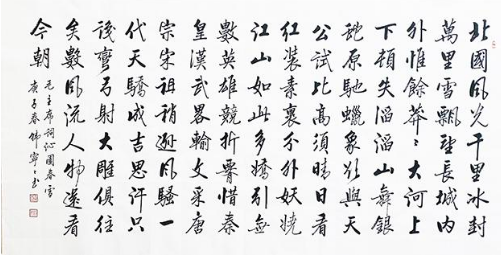 北國風光千里冰封
萬里雪飄望長城內
外惟餘莽〻大河上
下頓失滔滔山舞銀
蛇原馳蠟象欲與天
公試比高須晴日看
紅裝素裹分外妖嬈
江山如此多嬌引無
數英雄競折腰惜秦
皇漢武略輸文采唐
宗宋祖稍遜風騷一
代天驕成吉思汗只
識彎弓射大雕俱往
矣數風流人物還看
今朝
毛主席詞沁園春雪
庚子春